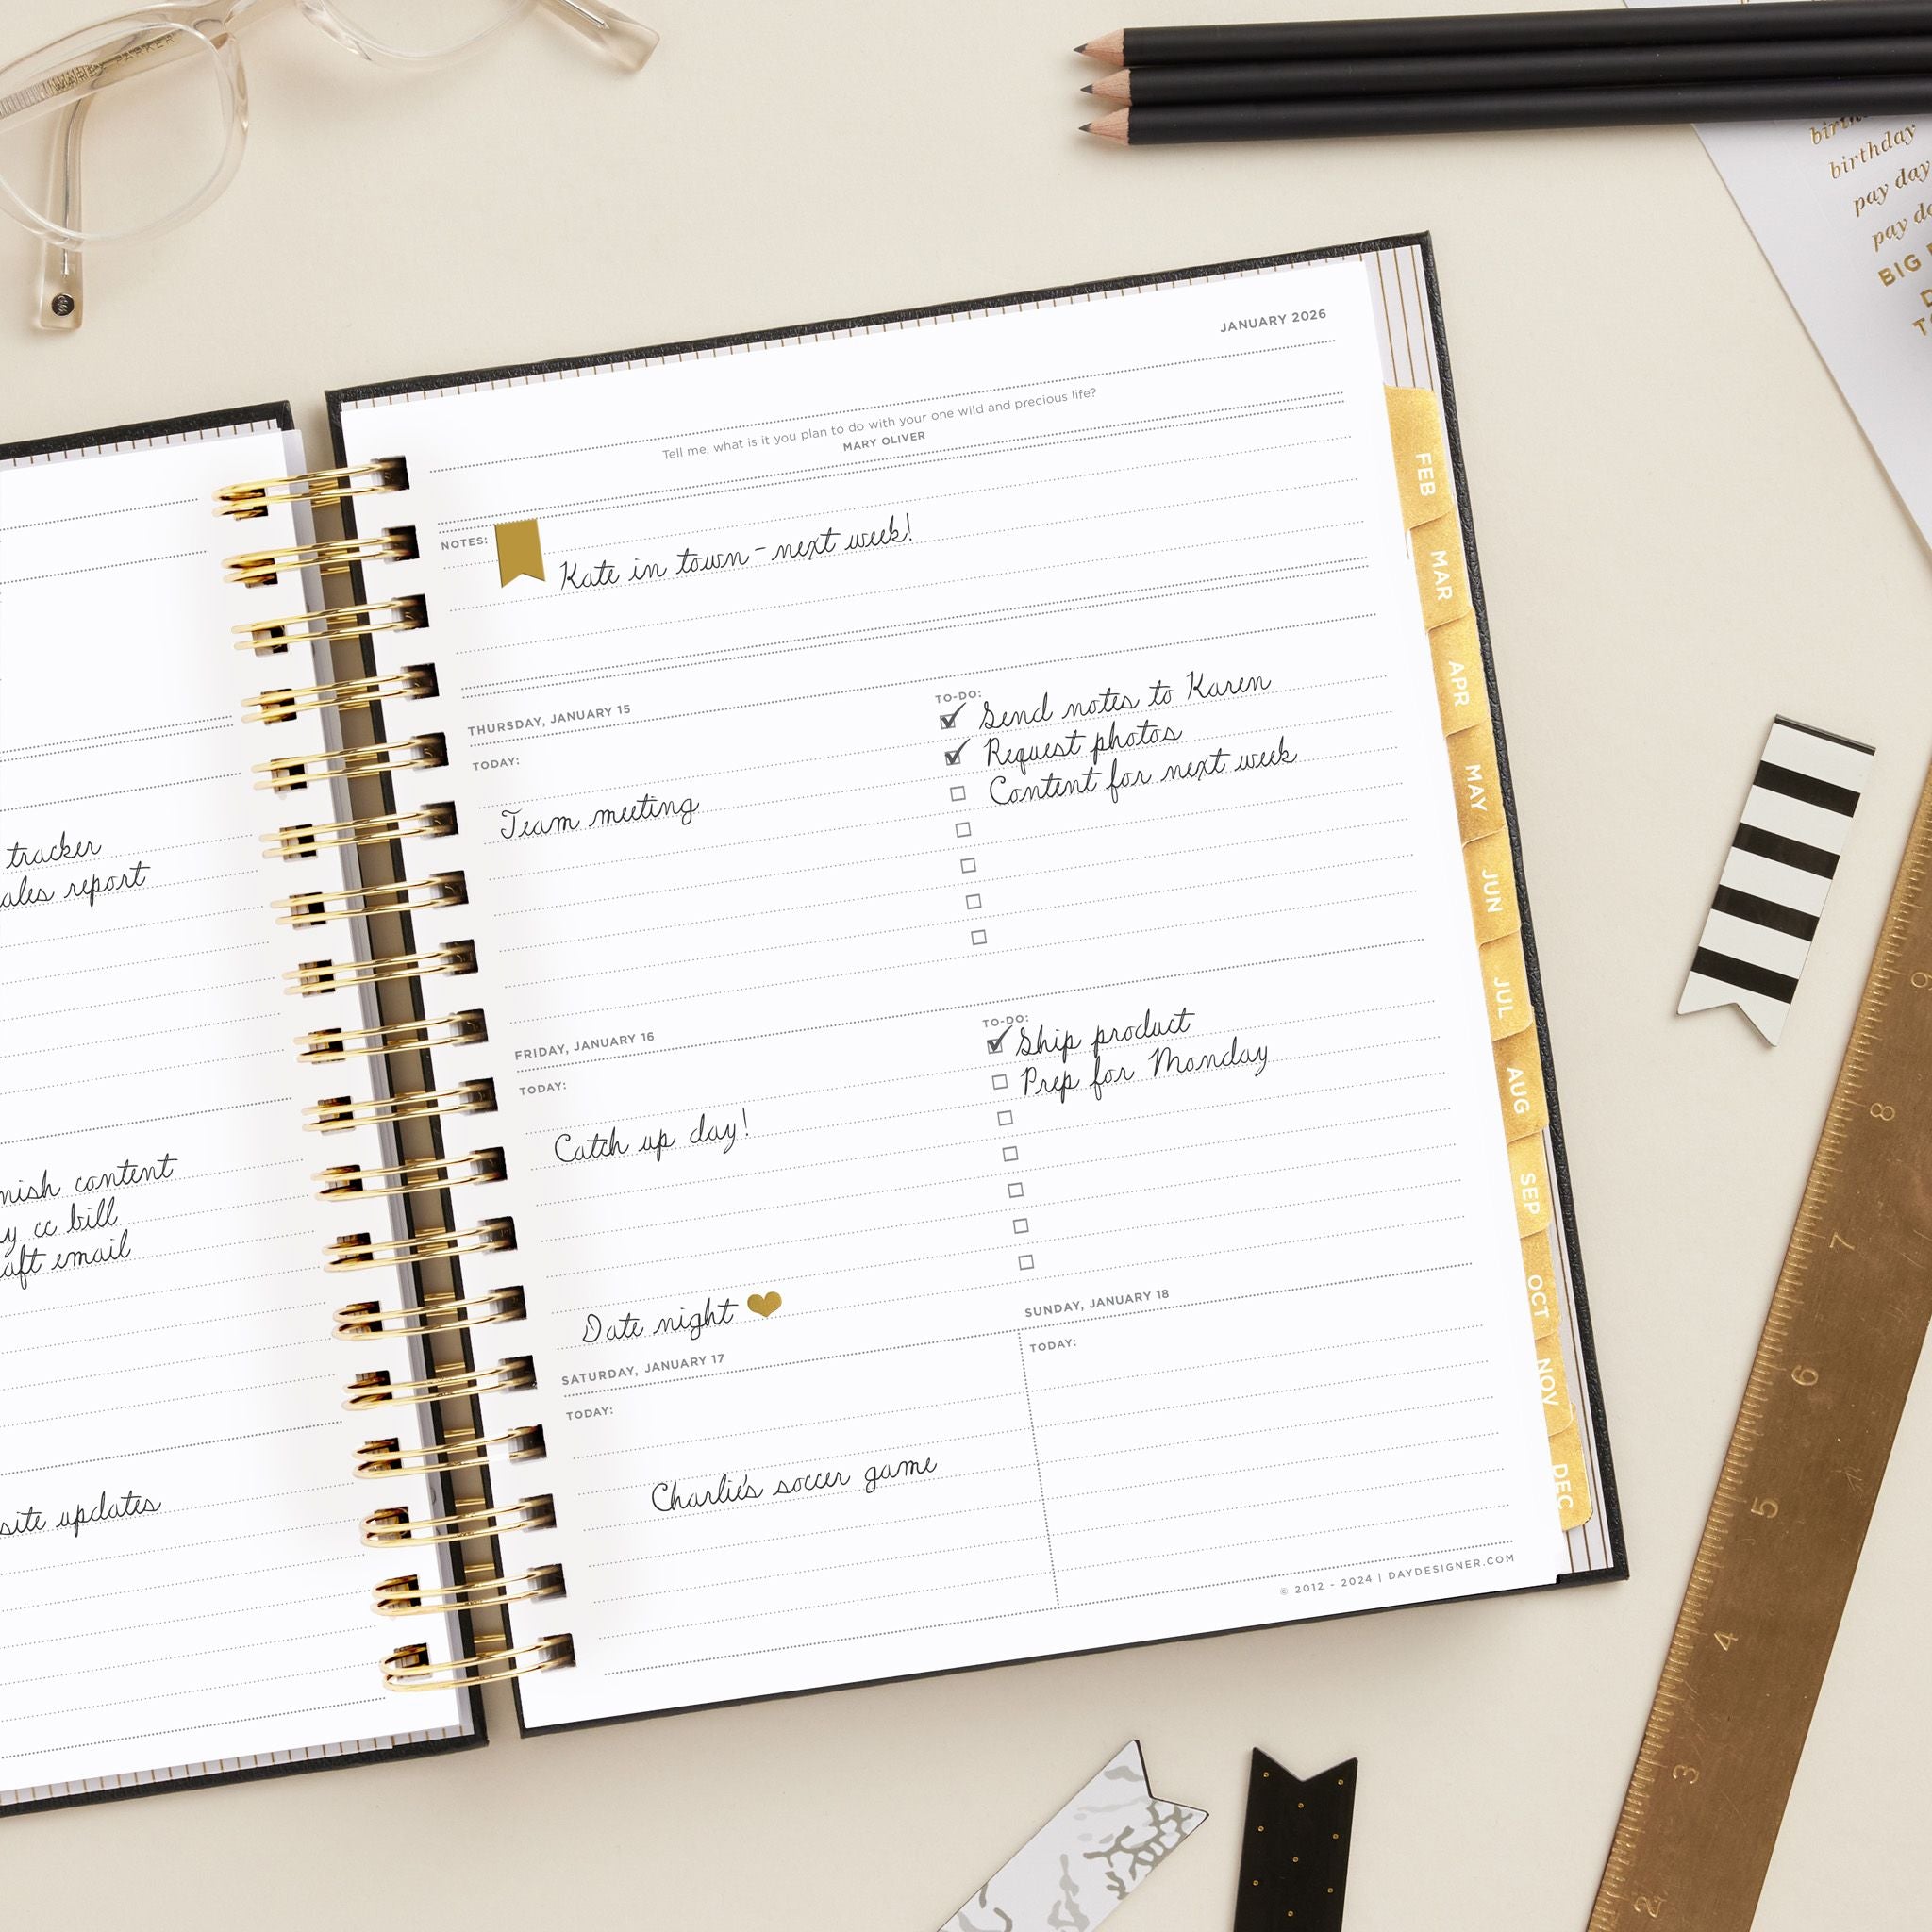 JANUARY 2026
Tell me, what is it you plan to do with your one wild and precious life?
MARY OLIVER
NOTES:
Kate in town - next week!
THURSDAY, JANUARY 15
TODAY:
Team meeting
TO-DO:
Send notes to Karen
Request photos
Content for next week
FRIDAY, JANUARY 16
TODAY:
Catch up day!
TO-DO:
Ship product
Prep for Monday
Date night
SATURDAY, JANUARY 17
TODAY:
Charlie's soccer game
SUNDAY, JANUARY 18
TODAY:
© 2012 - 2024 | DAYDESIGNER.COM
tracker
report
content
cc bill
email
site updates
FEB
MAR
APR
MAY
JUN
JUL
AUG
SEP
OCT
NOV
DEC
birthday
pay day
pay
BIG
9
8
7
6
5
4
3
2